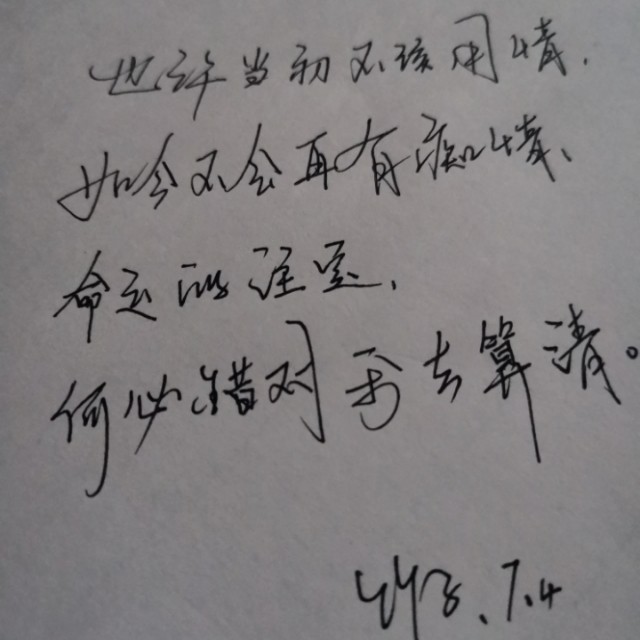 也许当初不该用情,
如今不会再有痴情、
命运的注定,
何必错对要去算清。
7.4